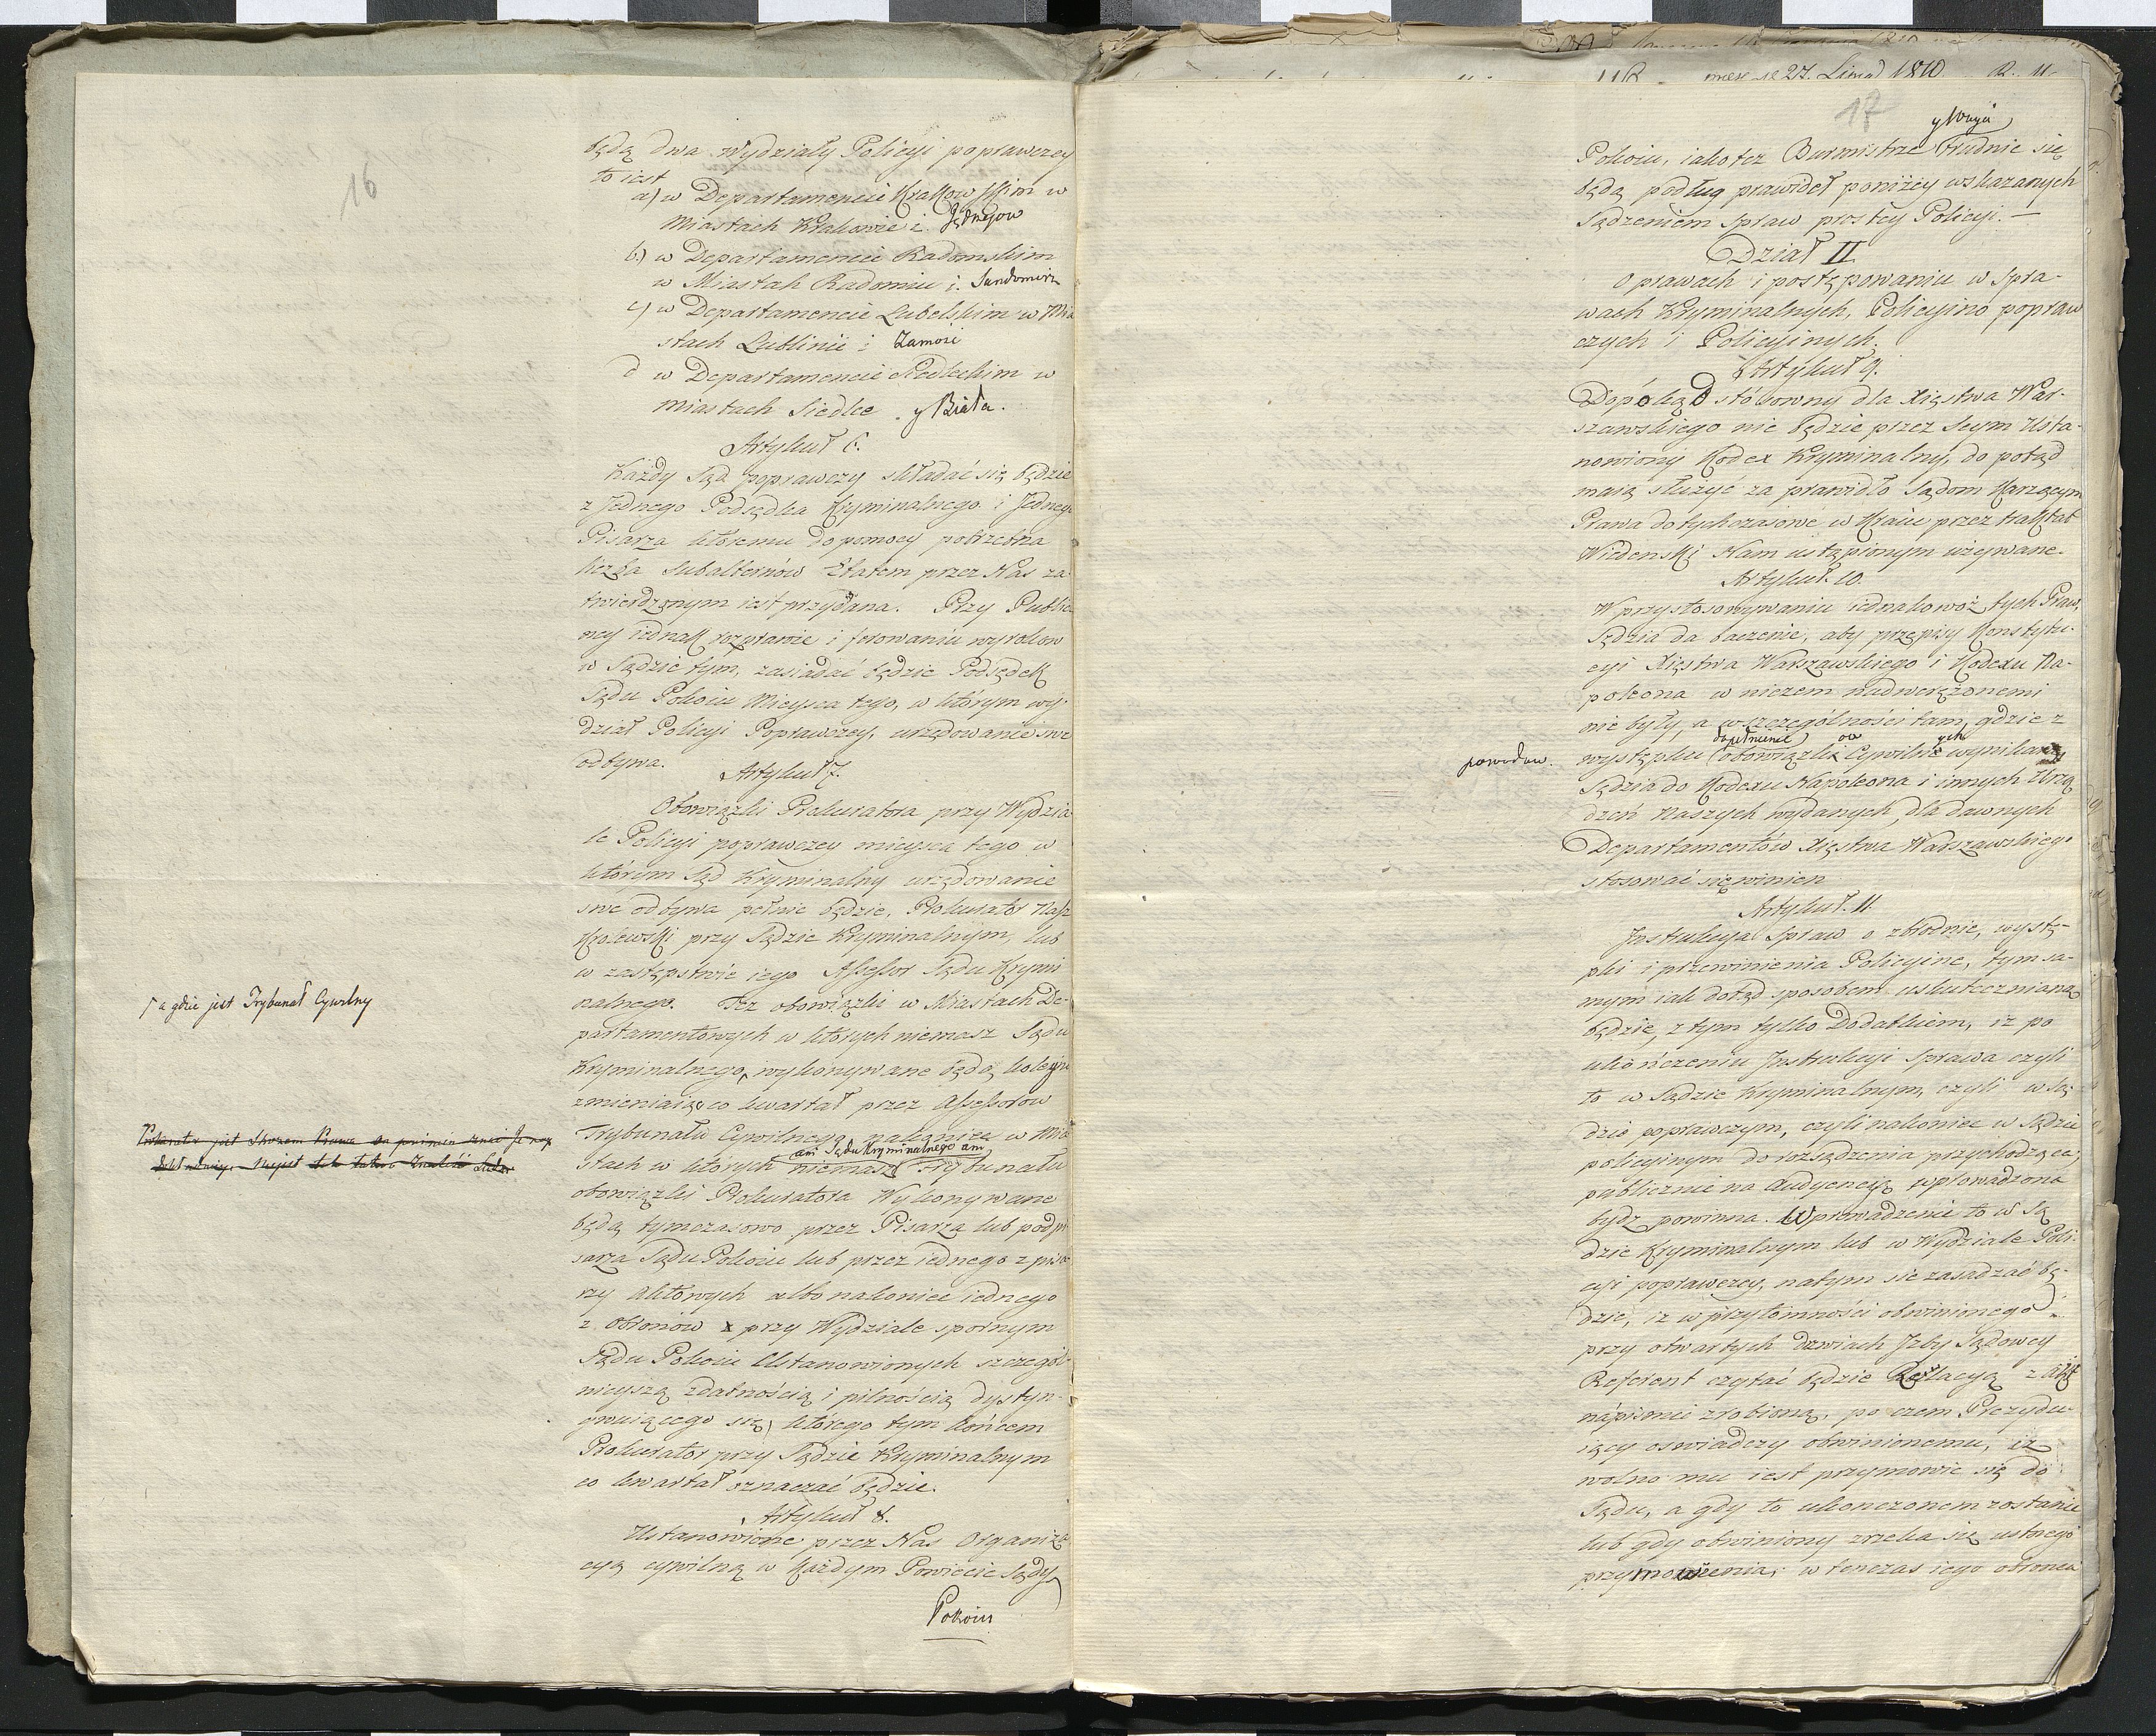 16
będą dwa Wydziały Policyi poprawczey
to iest
a) w Departamencie Krakowskim w
Miastach Krakowie i Jędrzejow
b.) w Departamencie Radomskim
w Miastah Radomiu i Sandomirz
c) w Departamencie Lubelskim w Mia
stach Lublinie i Zamość
d w Departamencie Siedleckim w
miastach Siedlce y Biała.
Artykuł 6.
Każdy Sąd poprawczy składać się będzie
z Jednego Podsędka Kryminalnego i Jednego
Pisarza któremu do pomocy potrzebna
liczba Subalternów Etatem przez Nas za-
twierdzonym iest przydana. Przy Publicz
ney iednak rozprawie i ferowaniu wyrokow
w Sądzie tym, zasiadać będzie Podsędek
Sądu Pokoiu Mieysca tego, w którym wy-
dział Policyi Poprawczey, urzędowanie swe
odbywa.
Artykuł 7.
Obowiązki Prokuratora przy Wydzia
le Policyi poprawczey mieysca tego w
którym Sąd Kryminalny urzędowanie
swe odbywa pełnić będzie, Prokurator Nasz
Krolewski przy Sądzie Kryminalnym, lub
w zastępstwie iego Assessor Sądu Krymi
nalnego. Też obowiązki w Miastach De-
partamentowych w których niemasz Sądu
a gdzie jest Trybunał Cywilny
Kryminalnego, wykonywane będą koleyno
zmieniaiąc co kwartał przez Assessorow
Trybunału Cywilnego, nakoniec w Mia
Prokurator jest
stach w których niemasz ani Sądu Kryminalnego ani Trybunału
obowiązki Prokuratora Wykonywane
będą tymczasowo przez Pisarza lub podpi
sarza Sądu Pokoiu lub przez iednego z pisa
rzy Aktowych albo nakoniec iednego
z Obronow przy Wydziale spornym
Sądu Pokoiu Ustanowionych szczegól-
nieyszą zdatnością i pilnością dystyn-
gwuiącego się, którego tym końcem
Prokurator przy Sądzie Kryminalnym
co kwartał oznaczać będzie.
Artykuł 8.
Ustanowione przez Nas Organiza
cyą cywilną w każdym Powiecie Sądy
Pokoiu
27. Listop 1810
17
Pokoiu, iako też Burmistrze y Woyci trudnić się
będą podług prawideł poniżey wskazanych
sądzeniem spraw prostey Policyi. —
Dział II.
O prawach i postępowaniu w Spra-
wach Kryminalnych, Policyino popraw
czych i Policyinych.
Artykuł 9.
Dopokąd stósowny dla Xięstwa War-
szawskiego nie będzie przez Seym Usta-
nowiony Kodex Kryminalny, do potąd
maią służyć za prawidło Sądom Karzącym
Prawa dotychczasowe w Kraiu przez traktat
Wiedenski Nam ustąpionym używane.
Artykuł. 10.
W przystosowywaniu iednakowoż tych Praw,
Sędzia da baczenie, aby przepisy Konstytu-
cyi Xięstwa Warszawskiego i Kodexu Na-
poleona w niczem nadwerężonemi
nie były, a w szczególności tam, gdzie z
powodow.
występku dopełnienie obowiązków Cywilnych wynika
Sędzia do Kodexu Napoleona i innych Urzą
dzeń Naszych wydanych, dla dawnych
Departamentów Xięstwa Warszawskiego
stosować się winien.
Artykuł. 11.
Instrukcya Spraw o zbrodnie, wystę-
pki i przewinienia Policyine, tym sa-
mym iak dotąd sposobem uskuteczniana
będzie, z tym tylko Dodatkiem, iż po
ukończeniu Instrukcyi Sprawa czyli
to w Sądzie Kryminalnym, czyli w Są-
dzie poprawczym, czyli nakoniec w Sądzie
policyinym do rozsądzenia przychodząca,
publicznie na Audyencyą wprowadzona
bydz powinna. Wprowadzenie to w Są
dzie Kryminalnym lub w Wydziale Poli-
cyi poprawczey, natym sie zasadzać bę-
dzie, iż w przytomności obwinionego
przy otwartych drzwiach Izby Sądowey
Referent czytać będzie Relacyą z Akt
napismie zrobioną, po czem Prezydu-
iący oswiadczy obwinionemu, iż
wolno mu iest przymowic się do
Sądu, a gdy to ukonczonem zostanie
lub gdy obwiniony zrzeka się ustnego
przymowienia, w tenczas iego obronca